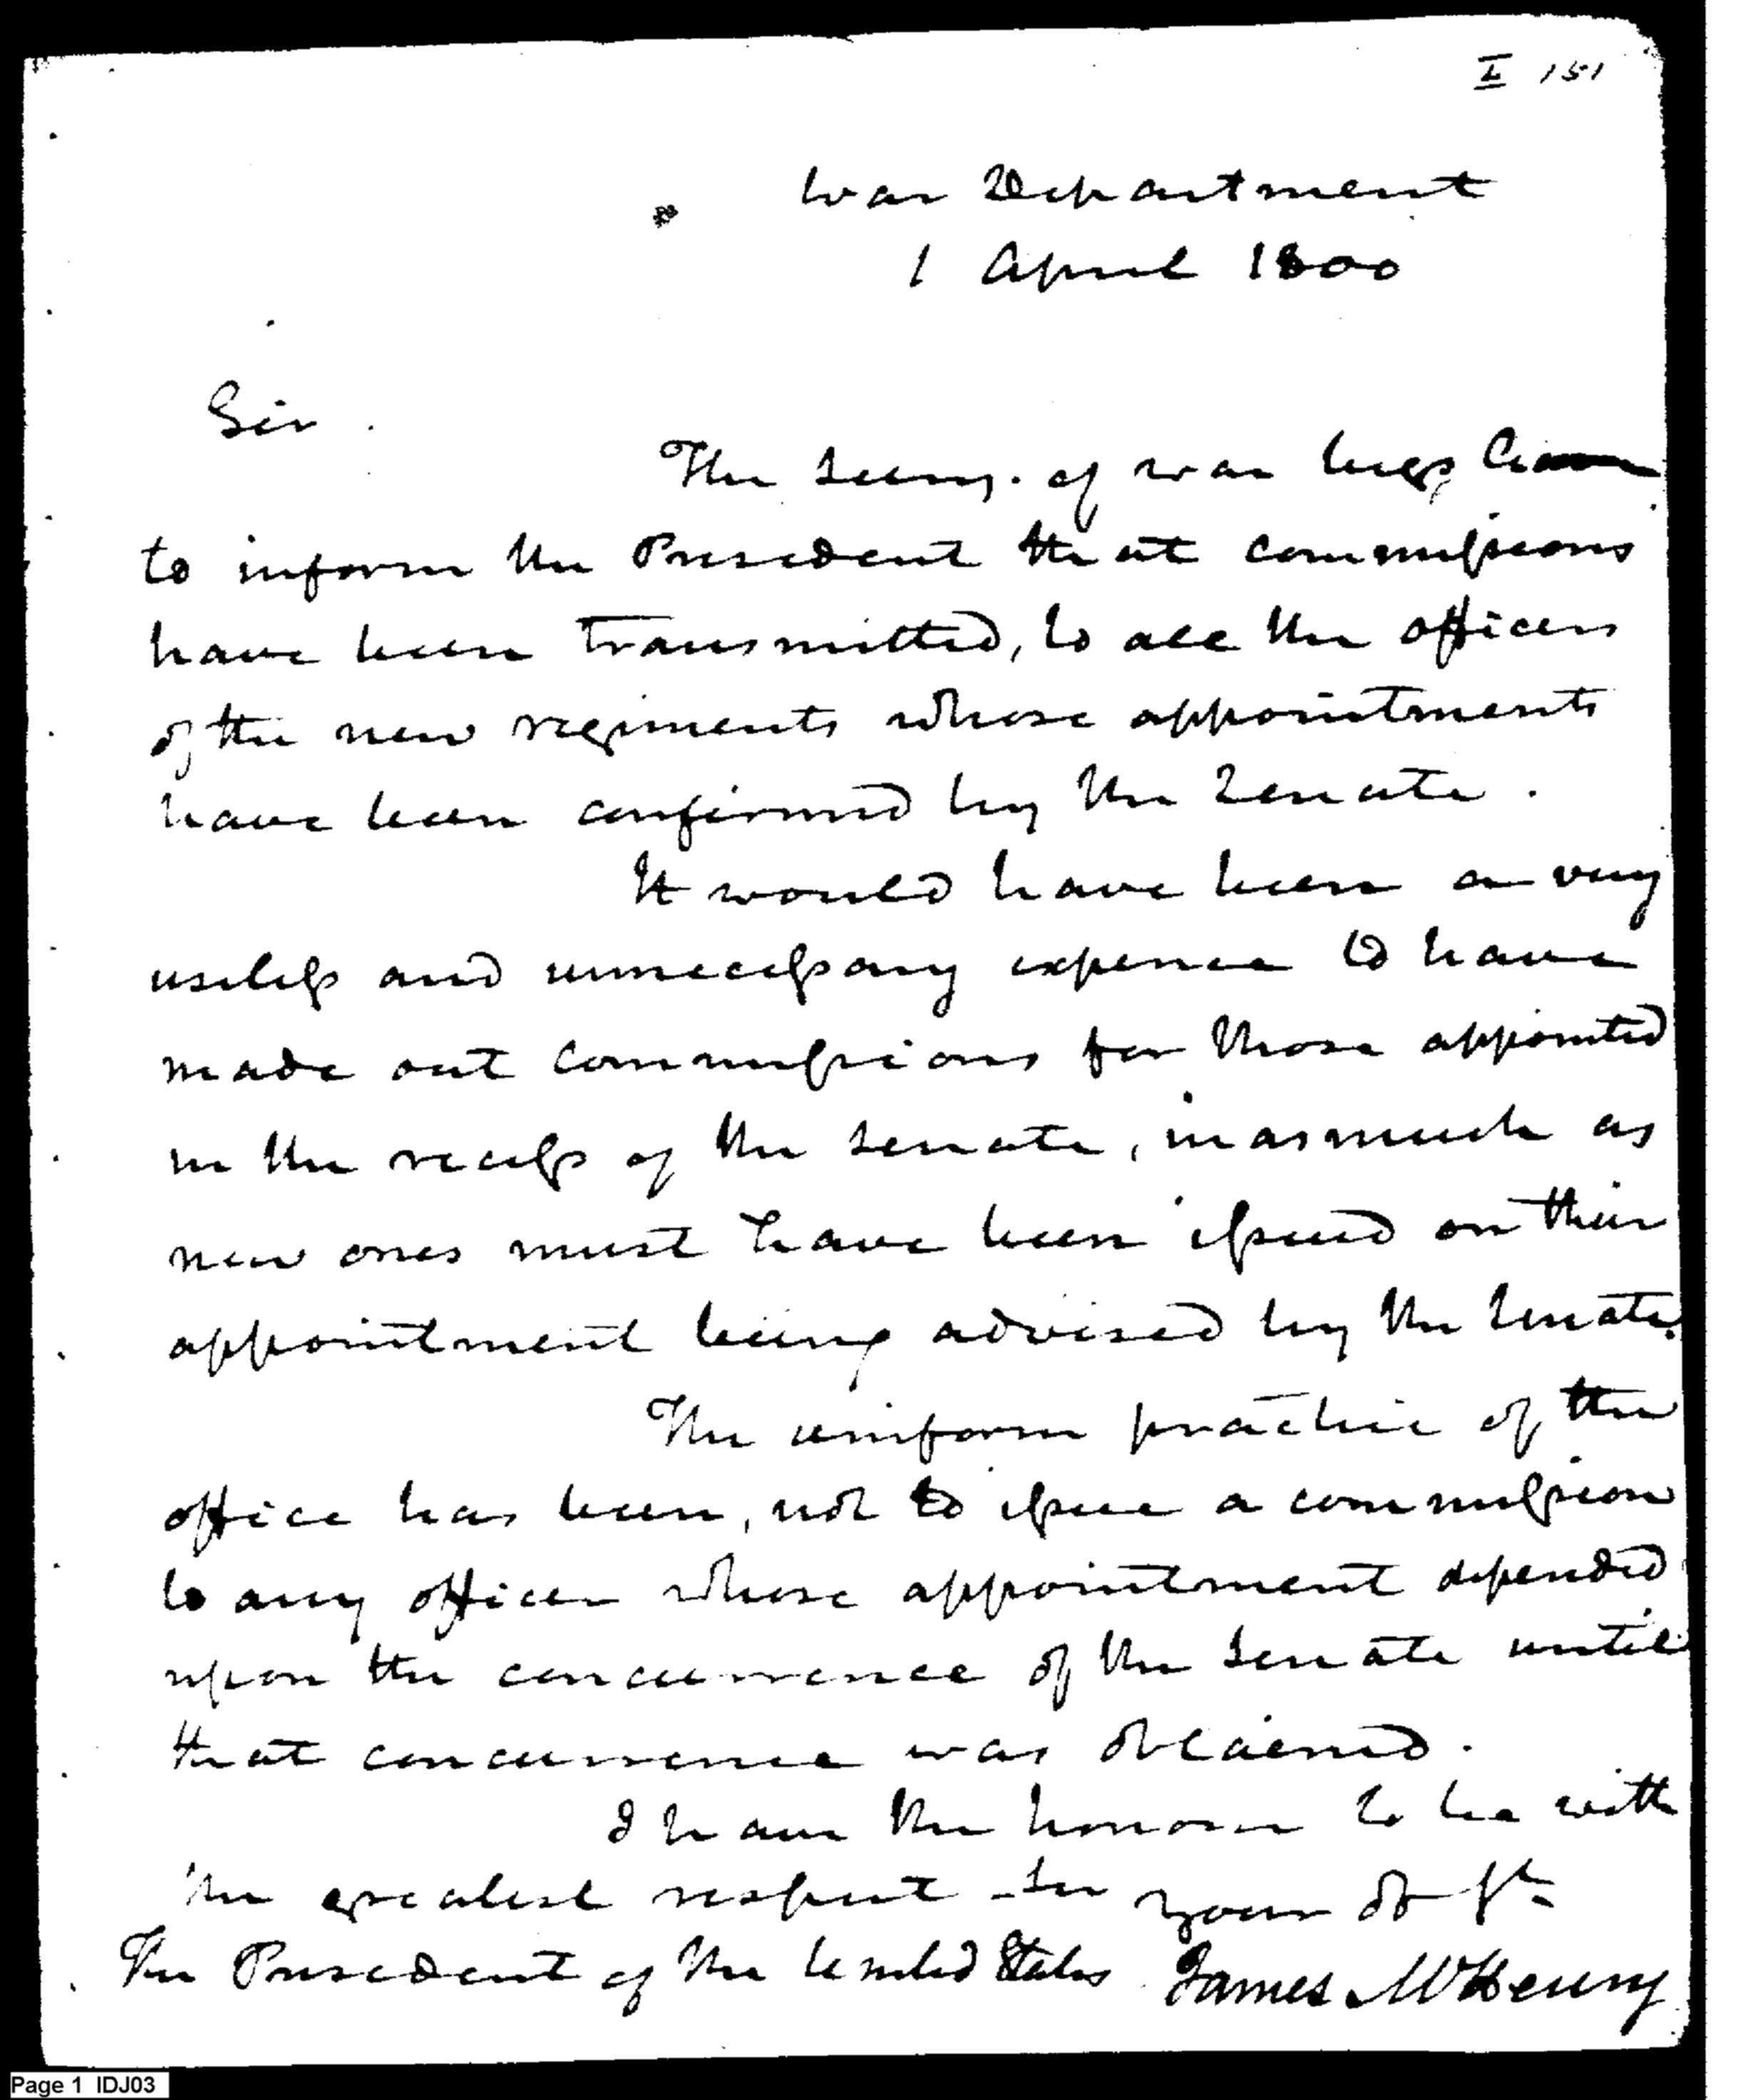 I 151
War Department
1 April 1800
Sir.
The Secy. of war begs leave
to inform the President that commissions
have been transmitted, to all the officers
of the new regiments whose appointments
have been confirmed by the Senate.
It would have been a very
useless and unnecessary expence to have
made out commissions for those appointed
in the recess of the Senate, in as much as
new ones must have been issued on their
appointment being advised by the Senate.
The uniform practice of the
office has been, not to issue a commission
to any officer whose appointment depended
upon the concurrence of the Senate until
that concurrence was obtained.
I have the honour to be with
the greatest respect Sir your ob St
The President of the United States James McHenry
Page 1 IDJ03